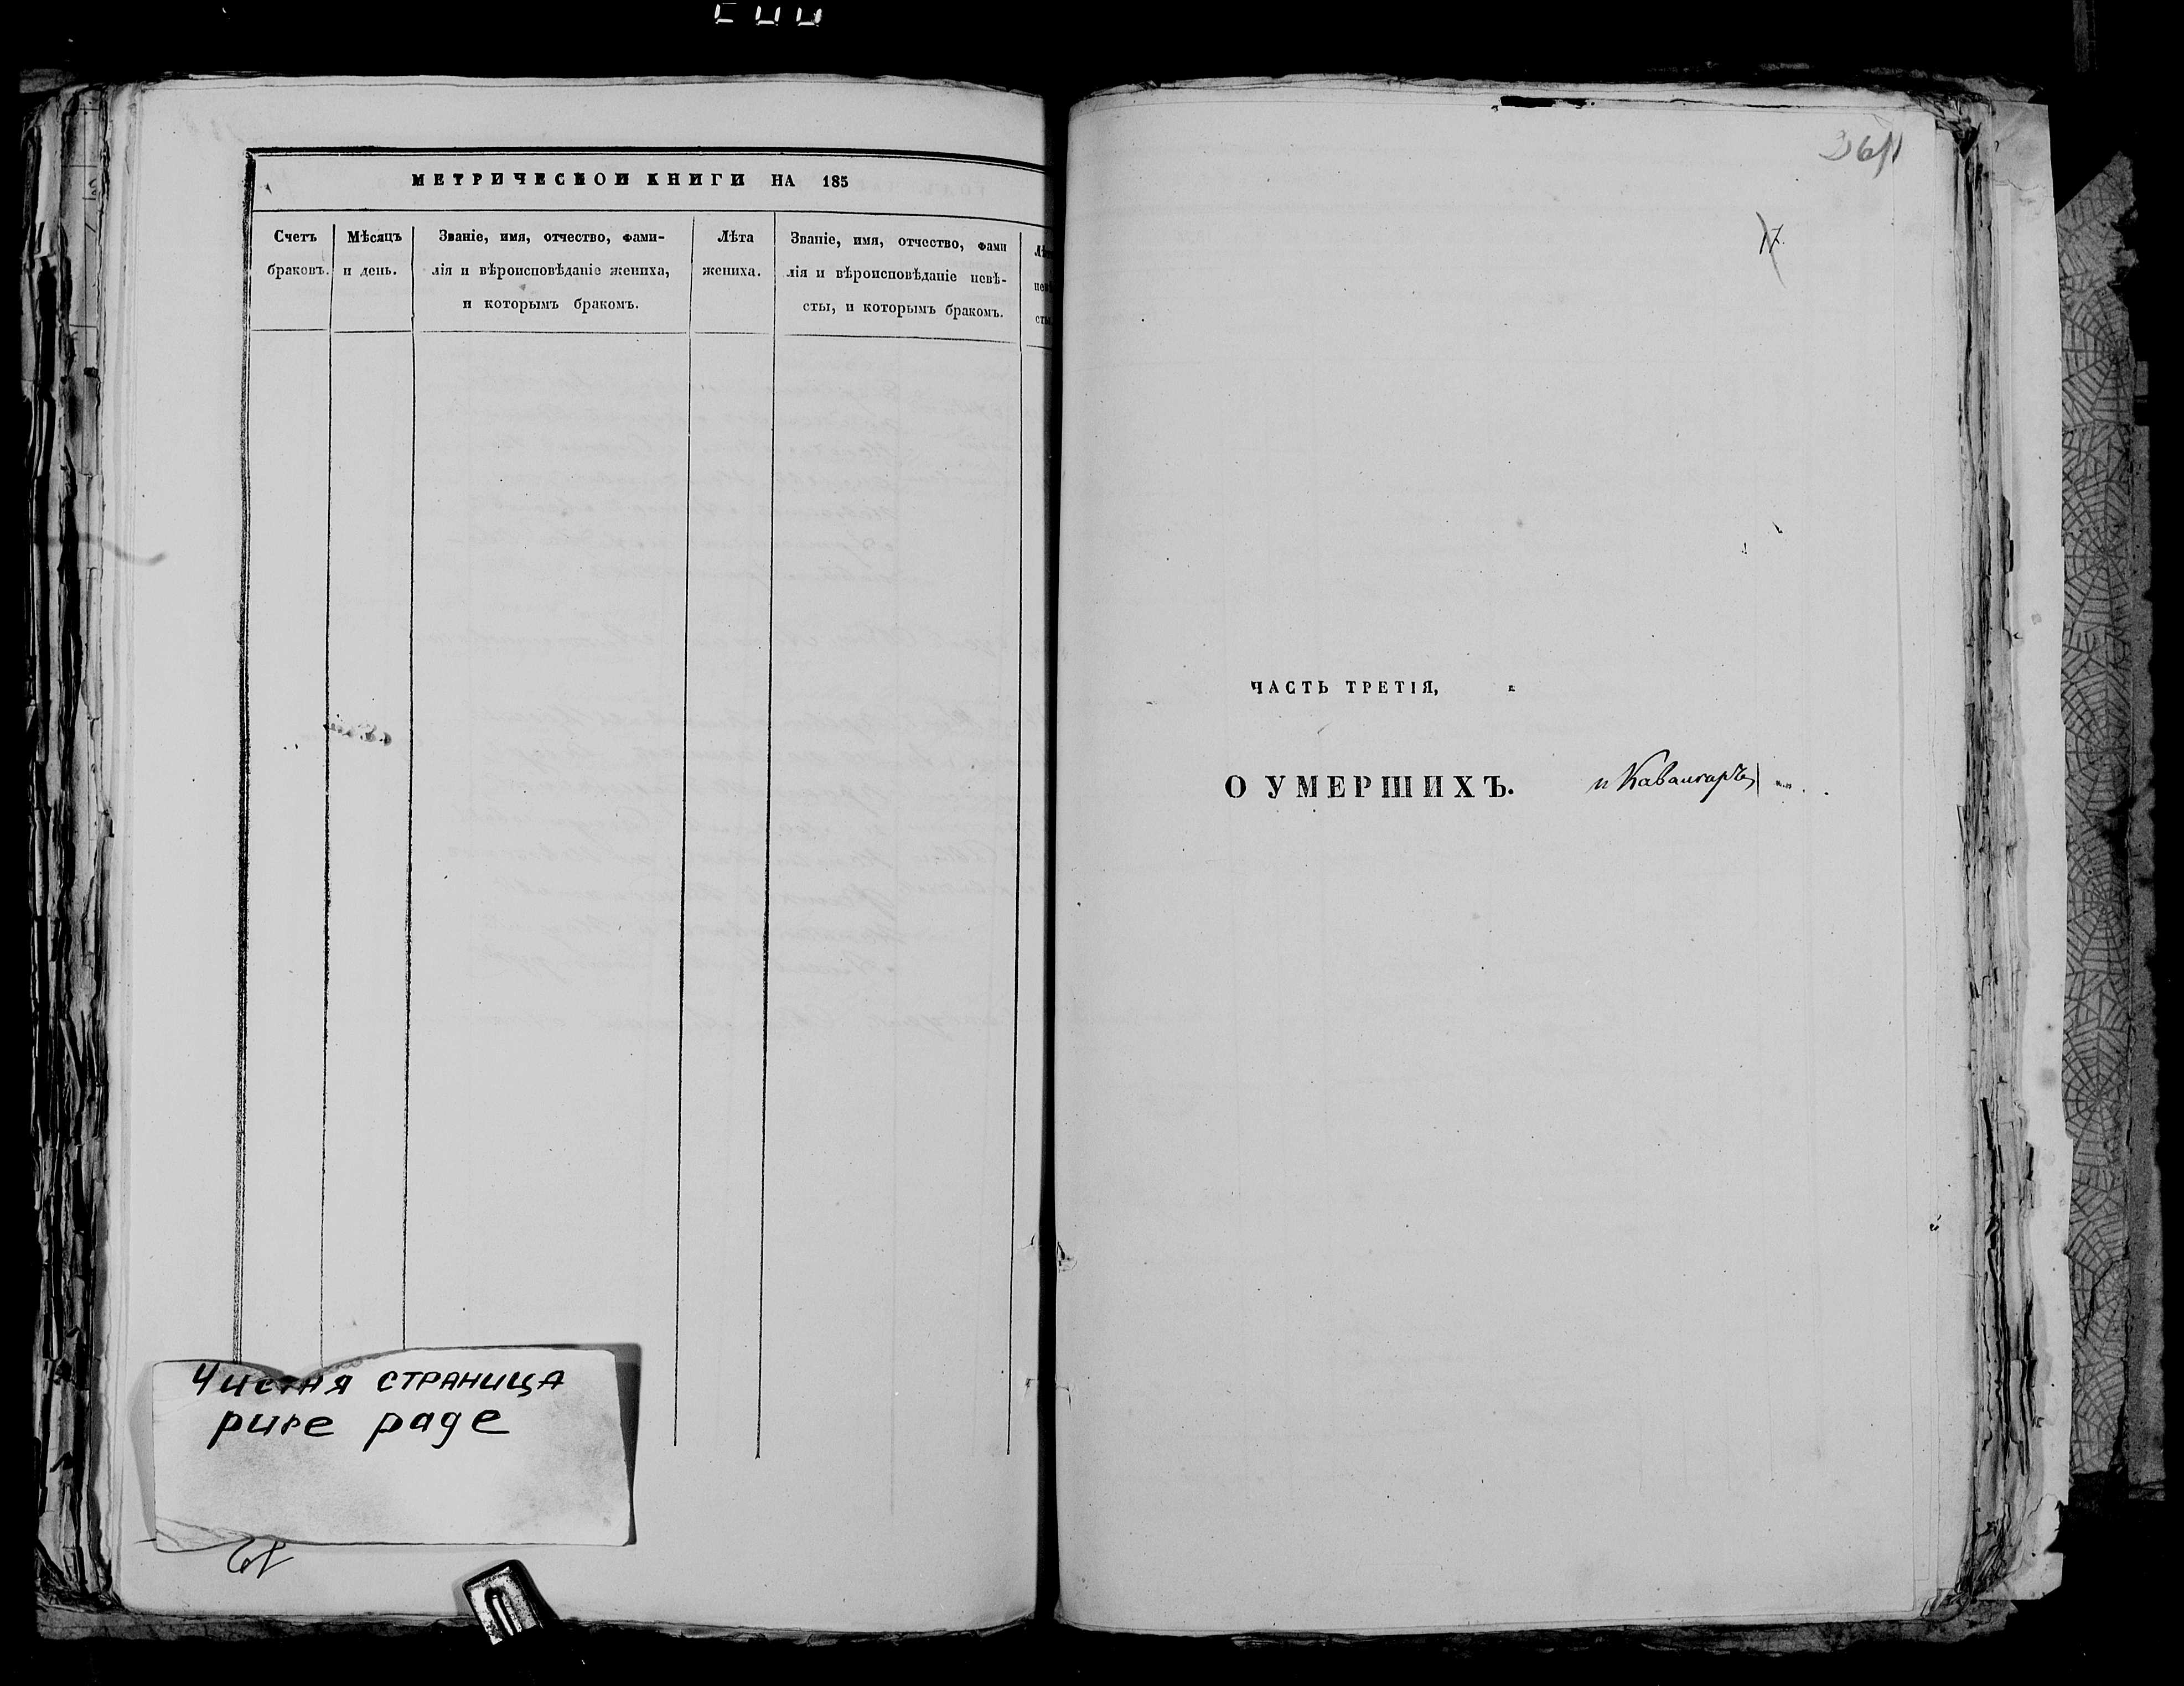 МЕТРИЧЕСКОЙ КНИГИ НА 185
Счетъ браковъ.
Мѣсяцъ и день.
Званіе, имя, отчество, фами-
лія и вѣроисповѣданіе жениха,
и которымъ бракомъ.
Лѣта
жениха.
Званіе, имя, отчество, фами
лія и вѣроисповѣданіе невѣ-
сты, и которымъ бракомъ.
Чистая страница
pure page
17
ЧАСТЬ ТРЕТІЯ,
О УМЕРШИХЪ.